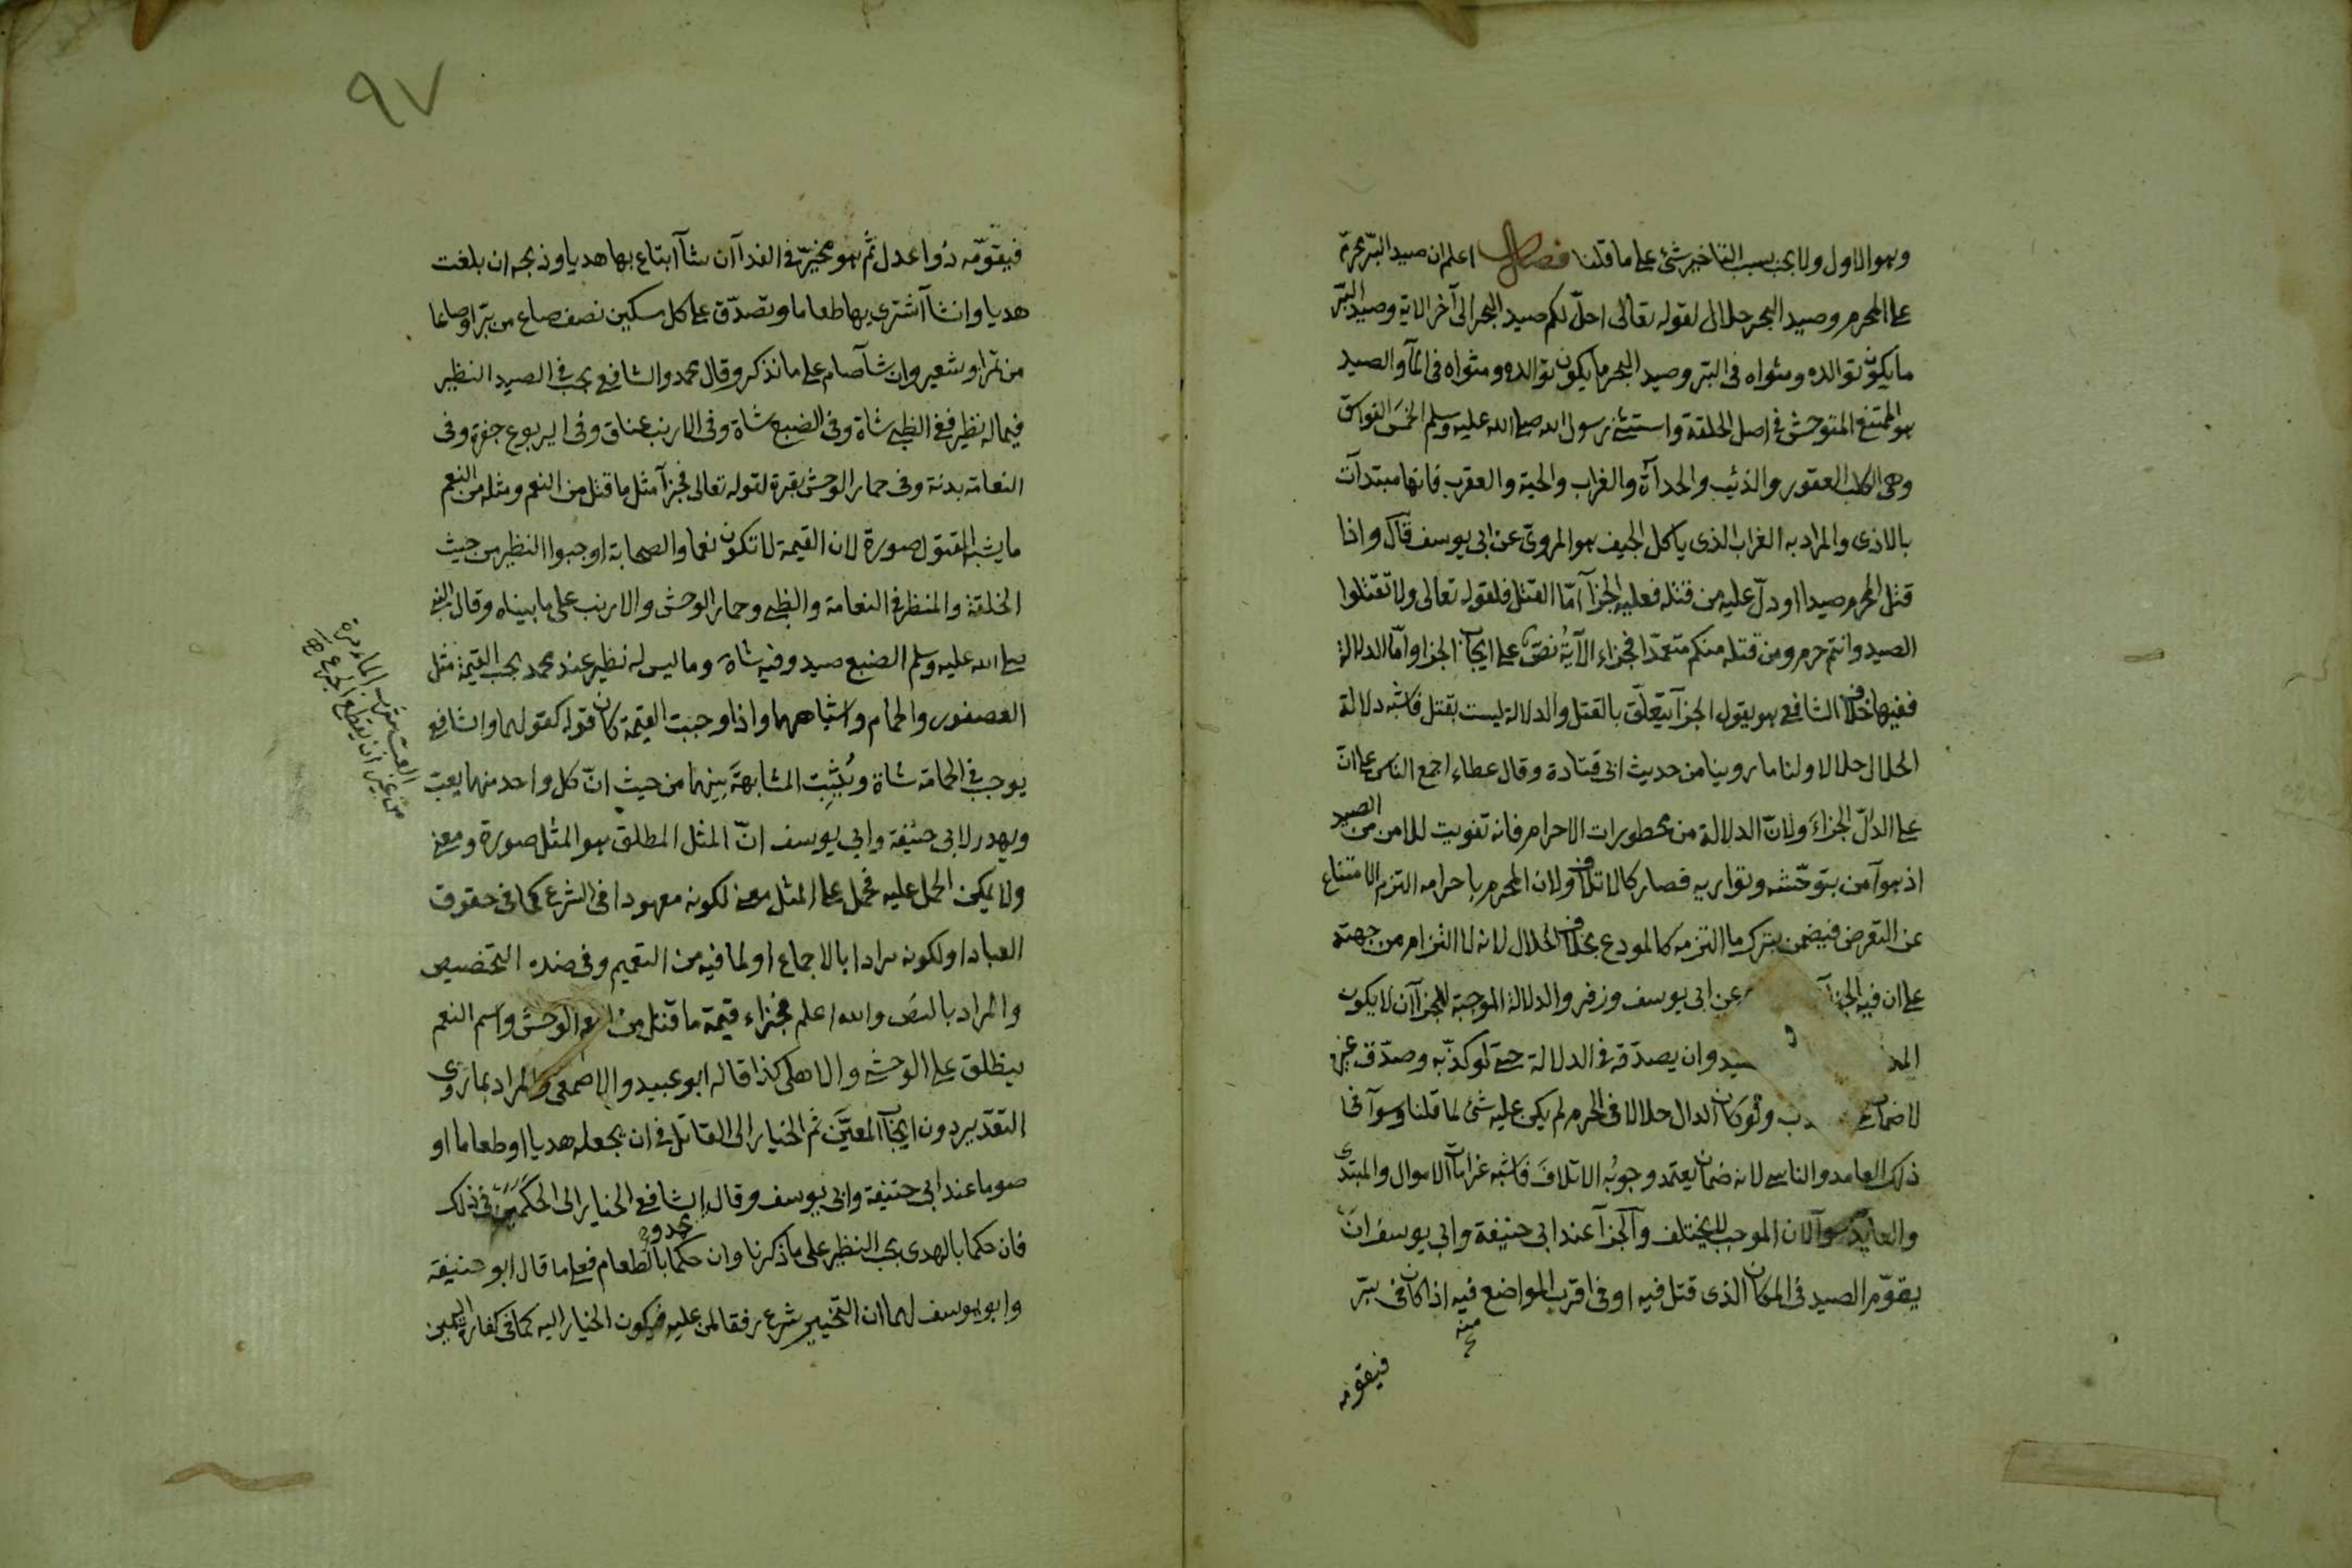 وهو الاول ولا يجب بسبب التاخير شئ على ما قلنا فصل اعلم ان صيد البرّ محرّم
على المحرم وصيد البحر حلال لقوله تعالى احلّ لكم صيد البحر الى آخر الاية وصيد البرّ
ما يكون توالده ومثواه فى البر وصيد البحر ما يكون توالده ومثواه فى المآ والصيد
هو الممتنع المتوحش فى اصل الخلقة واستثنى رسول الله صلى الله عليه وسلم الخمسَ الفواسق
وهى الكلب العقور والذئب والحدآة والغراب والحية والعقرب فانها مبتدآت
بالاذى والمراد به الغراب الذى ياكل الجيف هو المروىّ عن ابى يوسف قال واذا
قتل المحرم صيدا اودلّ عليه من قتله فعليه الجزآ امّا القتل فلقوله تعالى ولا تقتلوا
الصيد وانتم حرم ومن قتله منكم متعمّدا فجزاء الآية نُصّ على ايجاب الجزا وامّا الدلالة
ففيها خلاف الشافعى هو يقول الجزآ يتعلّق بالقتل والدلالة ليست بقتل فاشبه دلالة
الحلال حلالا ولنا ما روينا من حديث ابى قتادة وقال عطاء اجمع الناس على انّ
على الدالّ الجزاءَ ولانّ الدلالة من محظورات الاحرام فانه تفويت للامن من الصيد
اذ هو آمن بتوحّشه وتواريه فصار كالاتلاف ولان المحرم باحرامه التزم الامتناع
عن التعرض فيضمن بترك ما التزمه كالمودع بخلاف الحلال لانه لا التزام من جهته
على ان فيه الجزآ عن ابى يوسف وزفر والدلالة الموجبة للجزآ ان لا يكون
وان يصدّقه فى الدلالة حتى لو كذّبه وصدّق غيره
لا ضمان ولو كان الدال حلالا فى الحرم لم يكن عليه شئ لما قلنا وسوآ فى
ذلك العامد والناسى لانه ضمان يعتمد وجوبُه الاتلافَ فاشبه غرامات الاموال والمبتدى
والعايد سوآ لان الموجب لا يختلف والجزآ عند ابى حنيفة وابى يوسف ان
يقوّم الصيد فى المكان الذى قتل فيه او فى اقرب المواضع فيه اذا كان فى برّ
منه
فيقومه
٩٧
فيقوّمه ذوا عدل ثم هو مخيرّ فى الفدآ ان شآ ابتاع بها هديا وذبحه ان بلغت
هديا وان شآ اشترى بها طعاما وتصدّق على كل مسكين نصف صاع من برّ او صاعا
من تمر او شعير وان شآ صام على ما نذكر وقال محمد والشافعى يجب فى الصيد النظير
فيما له نظير ففى الظبى شاة وفى الضبع شاة وفى الارنب عناق وفى اليربوع جفرة وفى
النعامة بدنة وفى حمار الوحش بقرة لقوله تعالى فجزآ مثل ما قتل من النعم ومثله من النعم
ما يشبه المقتول صورة لان القيمة لا تكون نعما والصحابة اوجبوا النظير من حيث
الخلقة والمنظر فى النعامة والظبى وحمار الوحش والارنب على ما بيناه وقال النبى
صلى الله عليه وسلم الضبع صيد وفيه شاة وما ليس له نظير عند محمد يجب القيمة مثل
العصفور والحمام واشباههما واذا وجبت القيمة كان قوله كقولهما والشافعى
يوجب فى الحمامة شاة ويُثبِت المشابهةَ بينهما من حيث انّ كل واحد منهما يعبّ
ويهدر لابى حنيفة وابى يوسف انّ المثل المطلق هو المثل صورة ومعنى
ولا يمكن الحمل عليه فحمل على المثل معنى لكونه معهودا فى الشرع كما فى حقوق
العباد او لكونه مرادا بالاجماع او لما فيه من التعميم وفى ضده التخصيص
والمراد بالنصّ والله اعلم فجزاء قيمة ما قتل من النعم الوحش واسم النعم
يطلق على الوحشى والاهلى كذا قاله ابو عبيد والاصمعى والمراد بما رَوى
التقدير دون ايجاب المعيَّن ثم الخيار الى القاتل فى ان يجعله هديا او طعاما او
صوما عند ابى حنيفة وابى يوسف وقال الشافعى الخيار الى الحكَمَين فى ذلك
محمد و
فان حكما بالهدى يجب النظير على ما ذكرنا وان حكما بالطعام فعلى ما قال ابو حنيفة
وابو يوسف لهما ان التخيير شرع رفقا لمن عليه فيكون الخيار اليه كما فى كفارة اليمين
العبّ شرب المآ بمرّة
من غير ان يقطع الجرع